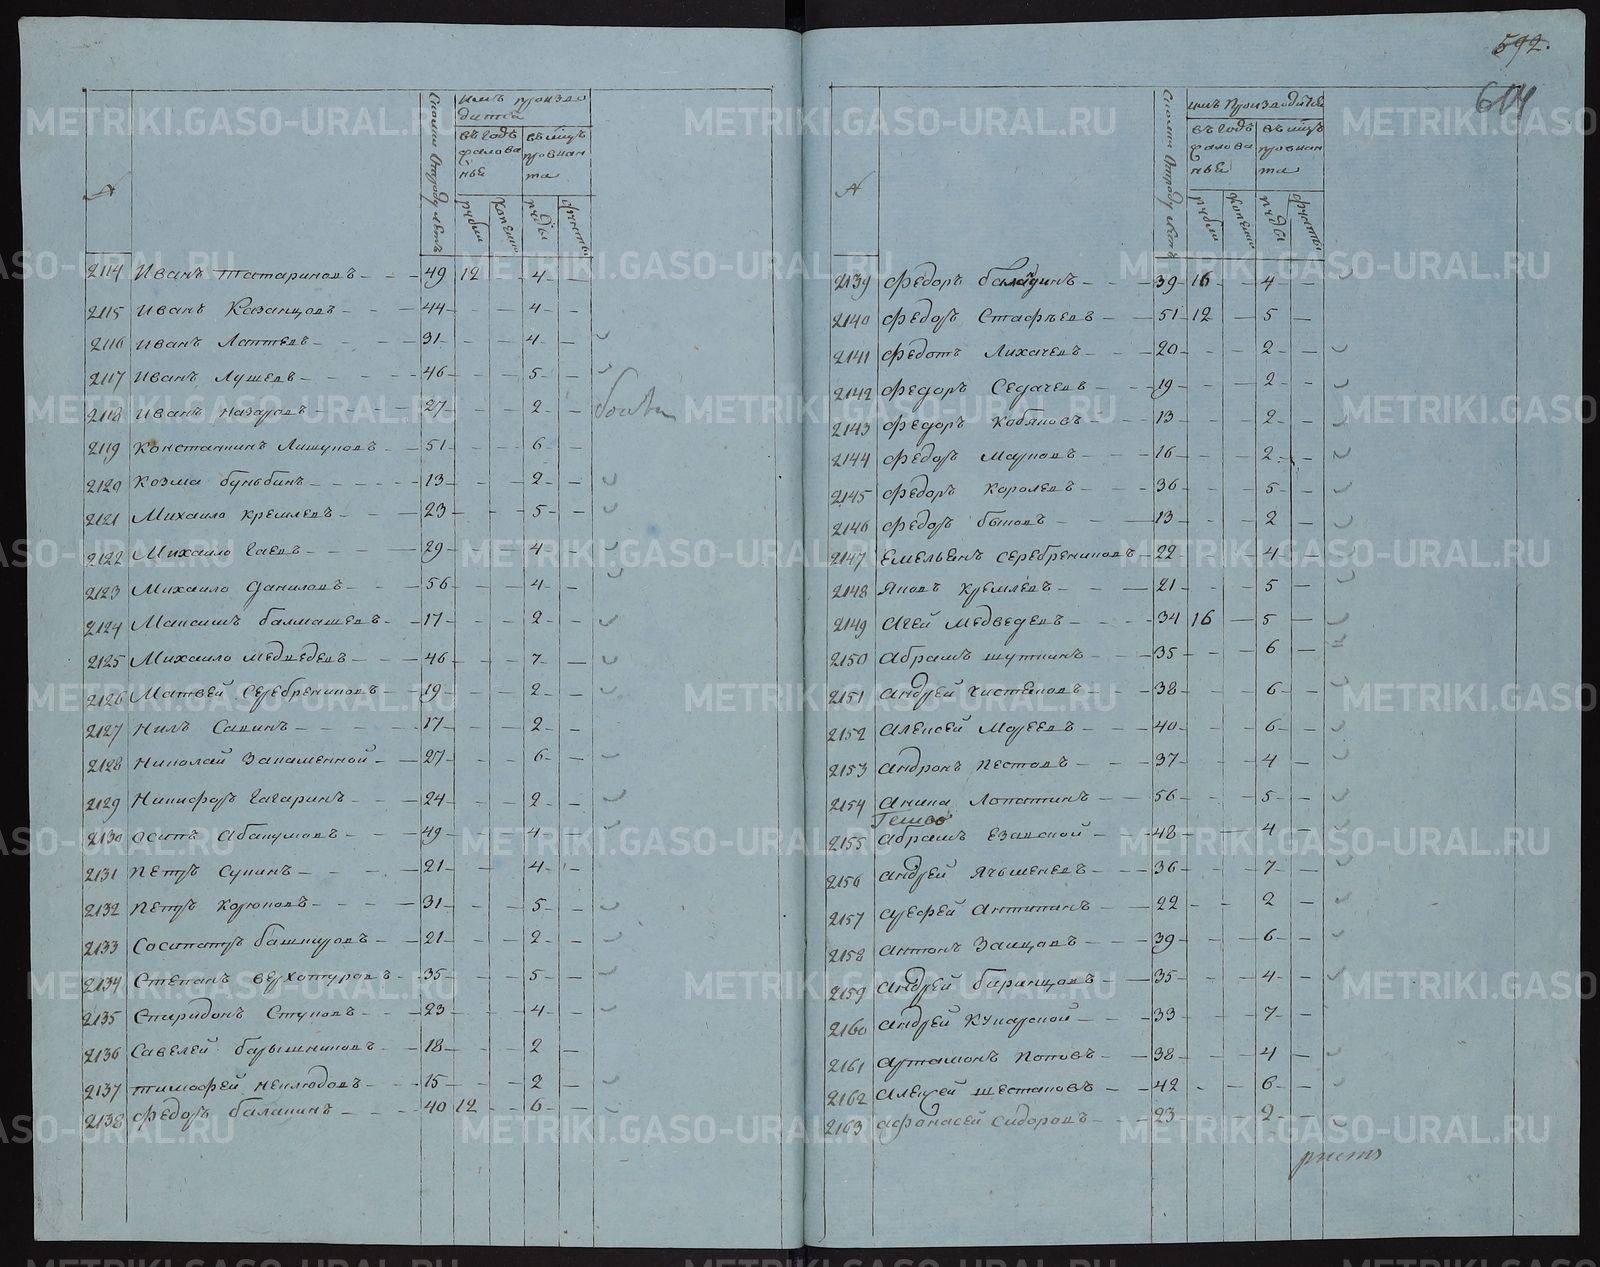 592.
604
№
Сколко отроду летъ
имъ произво
дится
въ годъ
жалова
нье
въ мцъ
провиан
та
рубли
копеики
пуды
фунты
2114 Иванъ Татариновъ 49 12 4
2115 Иванъ Казанцовъ 44 4
2116 Иванъ Лаптевъ 31 4
2117 Иванъ Лушевъ 46 5
2118 Иванъ Назаровъ 27 2
2119 Константинъ Лишуновъ 51 6
2120 Козма бунбинъ 13 2
2121 Михаило Кремлевъ 23 5
2122 Михаило Гаевъ 29 4
2123 Михаило Даниловъ 56 4
2124 Максимъ балташевъ 17 2
2125 Михаило Медведевъ 46 7
2126 Матвей Серебрениковъ 19 2
2127 Нилъ Савинъ 17 2
2128 Николай Закаменной 27 6
2129 Никифоръ Гагаринъ 24 2
2130 Осипъ Абакумовъ 49 4
2131 Петръ Сукинъ 21 4
2132 Петръ Корюковъ 31 5
2133 Сосипатръ башкировъ 21 2
2134 Степанъ Верхотуровъ 35 5
2135 Спиридонъ Стуковъ 23 4
2136 Савелей барышниковъ 18 2
2137 Тимофей Неклюдовъ 15 2
2138 Федоръ балакинъ 40 12 6
№
Сколко отроду летъ
имъ производится
въ годъ
жалова
нье
въ мцъ
провиан
та
рубли
копеики
пуды
фунты
2139 Федоръ 39 16 4
2140 Федоръ Стафеевъ 51 12 5
2141 Федотъ Лихачевъ 20 2
2142 Федоръ Седачевъ 19 2
2143 Федоръ Кобяковъ 13 2
2144 Федоръ Марковъ 16 2
2145 Федоръ Королевъ 36 5
2146 Федоръ быковъ 13 2
2147 Емельянъ Серебрениковъ 22 4
2148 Яковъ Кремлевъ 21 5
2149 Агей Медведевъ 34 16 5
2150 Абрамъ Шуткинъ 35 6
2151 Андрей Чистяковъ 38 6
2152 Алексей Мокеевъ 40 6
2153 Андронъ Пестовъ 37 4
2154 Аника Лопатинъ 56 5
2155 Абрамъ Езовской 48 4
2156 Андрей Ячменевъ 36 7
2157 Арефей Антипинъ 22 2
2158 Антонъ Заицовъ 39 6
2159 Андрей баранцовъ 35 4
2160 Андрей Кунарской 33 7
2161 Артамонъ Поповъ 38 4
2162 Алексей Шестаковъ 42 6
2163 Афонасей Сидоровъ 23 2
METRIKI.GASO-URAL.RU